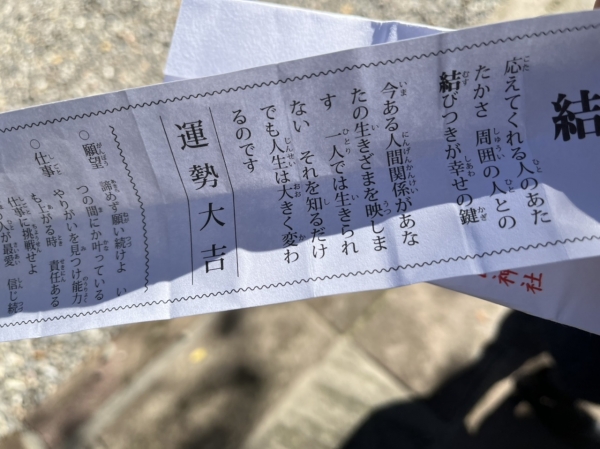 結
応えてくれる人のあた
たかさ 周囲の人との
結びつきが幸せの鍵
今ある人間関係があな
たの生きざまを映しま
す 一人では生きられ
ない それを知るだけ
でも人生は大きく変わ
るのです
運勢大吉
○願望 諦めず願い続けよ い
つの間にか叶っている
○仕事 やりがいを見つけ能力
も上がる時 責任ある
仕事に挑戦せよ
の人が最愛 信じ続
神社